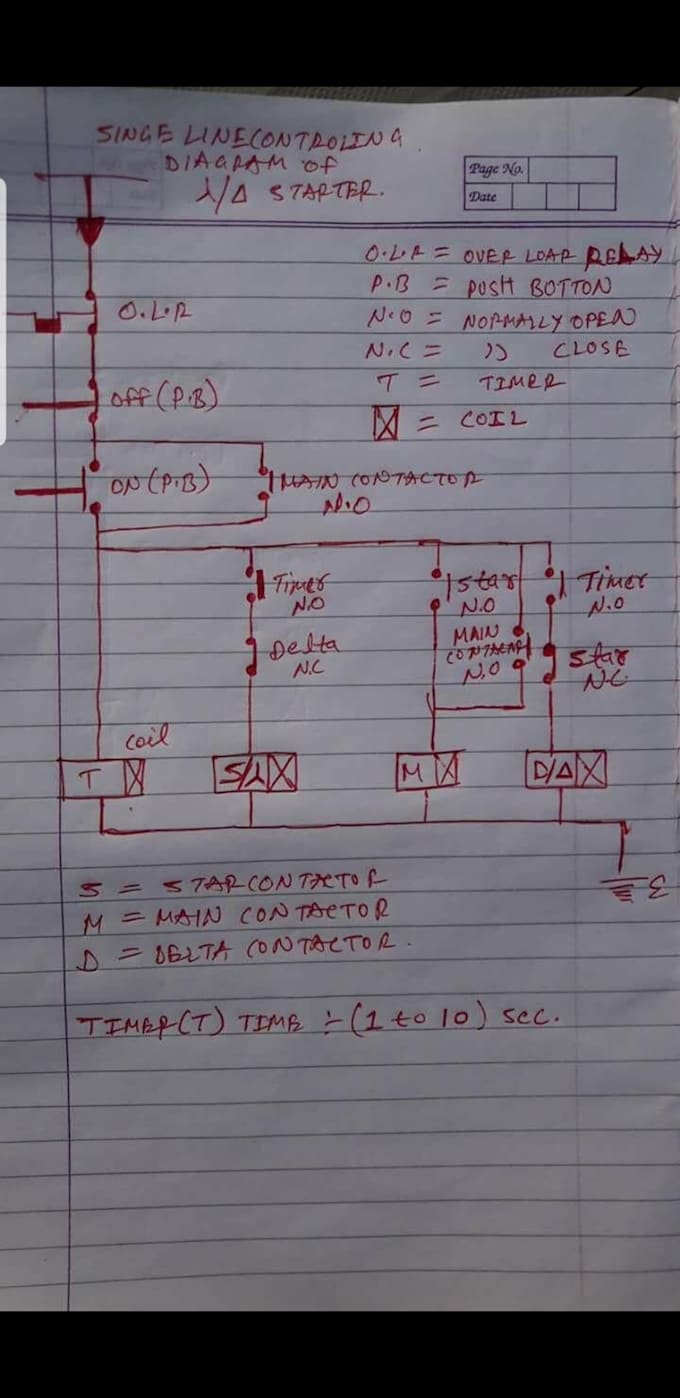 SINGE LINE CONTROLING
DIAGRAM OF
⅄/Δ STARTER.
Page No.
Date
O.L.R = OVER LOAR RELAY
P.B = PUSH BOTTON
N.O = NORMALLY OPEN
N.C = ,, CLOSE
T = TIMER
= COIL
O.L.R
OFF (P.B)
ON (P.B)
MAIN CONTACTOR
N.O
Timer
N.O
Delta
N.C
Star
N.O
MAIN
N.O
Timer
N.O
Star
N.C.
coil
T
S/⅄
M
D/Δ
E
S = STAR CONTACTOR
M = MAIN CONTACTOR
D = DELTA CONTACTOR.
TIMER(T) TIME :- (1 to 10) sec.